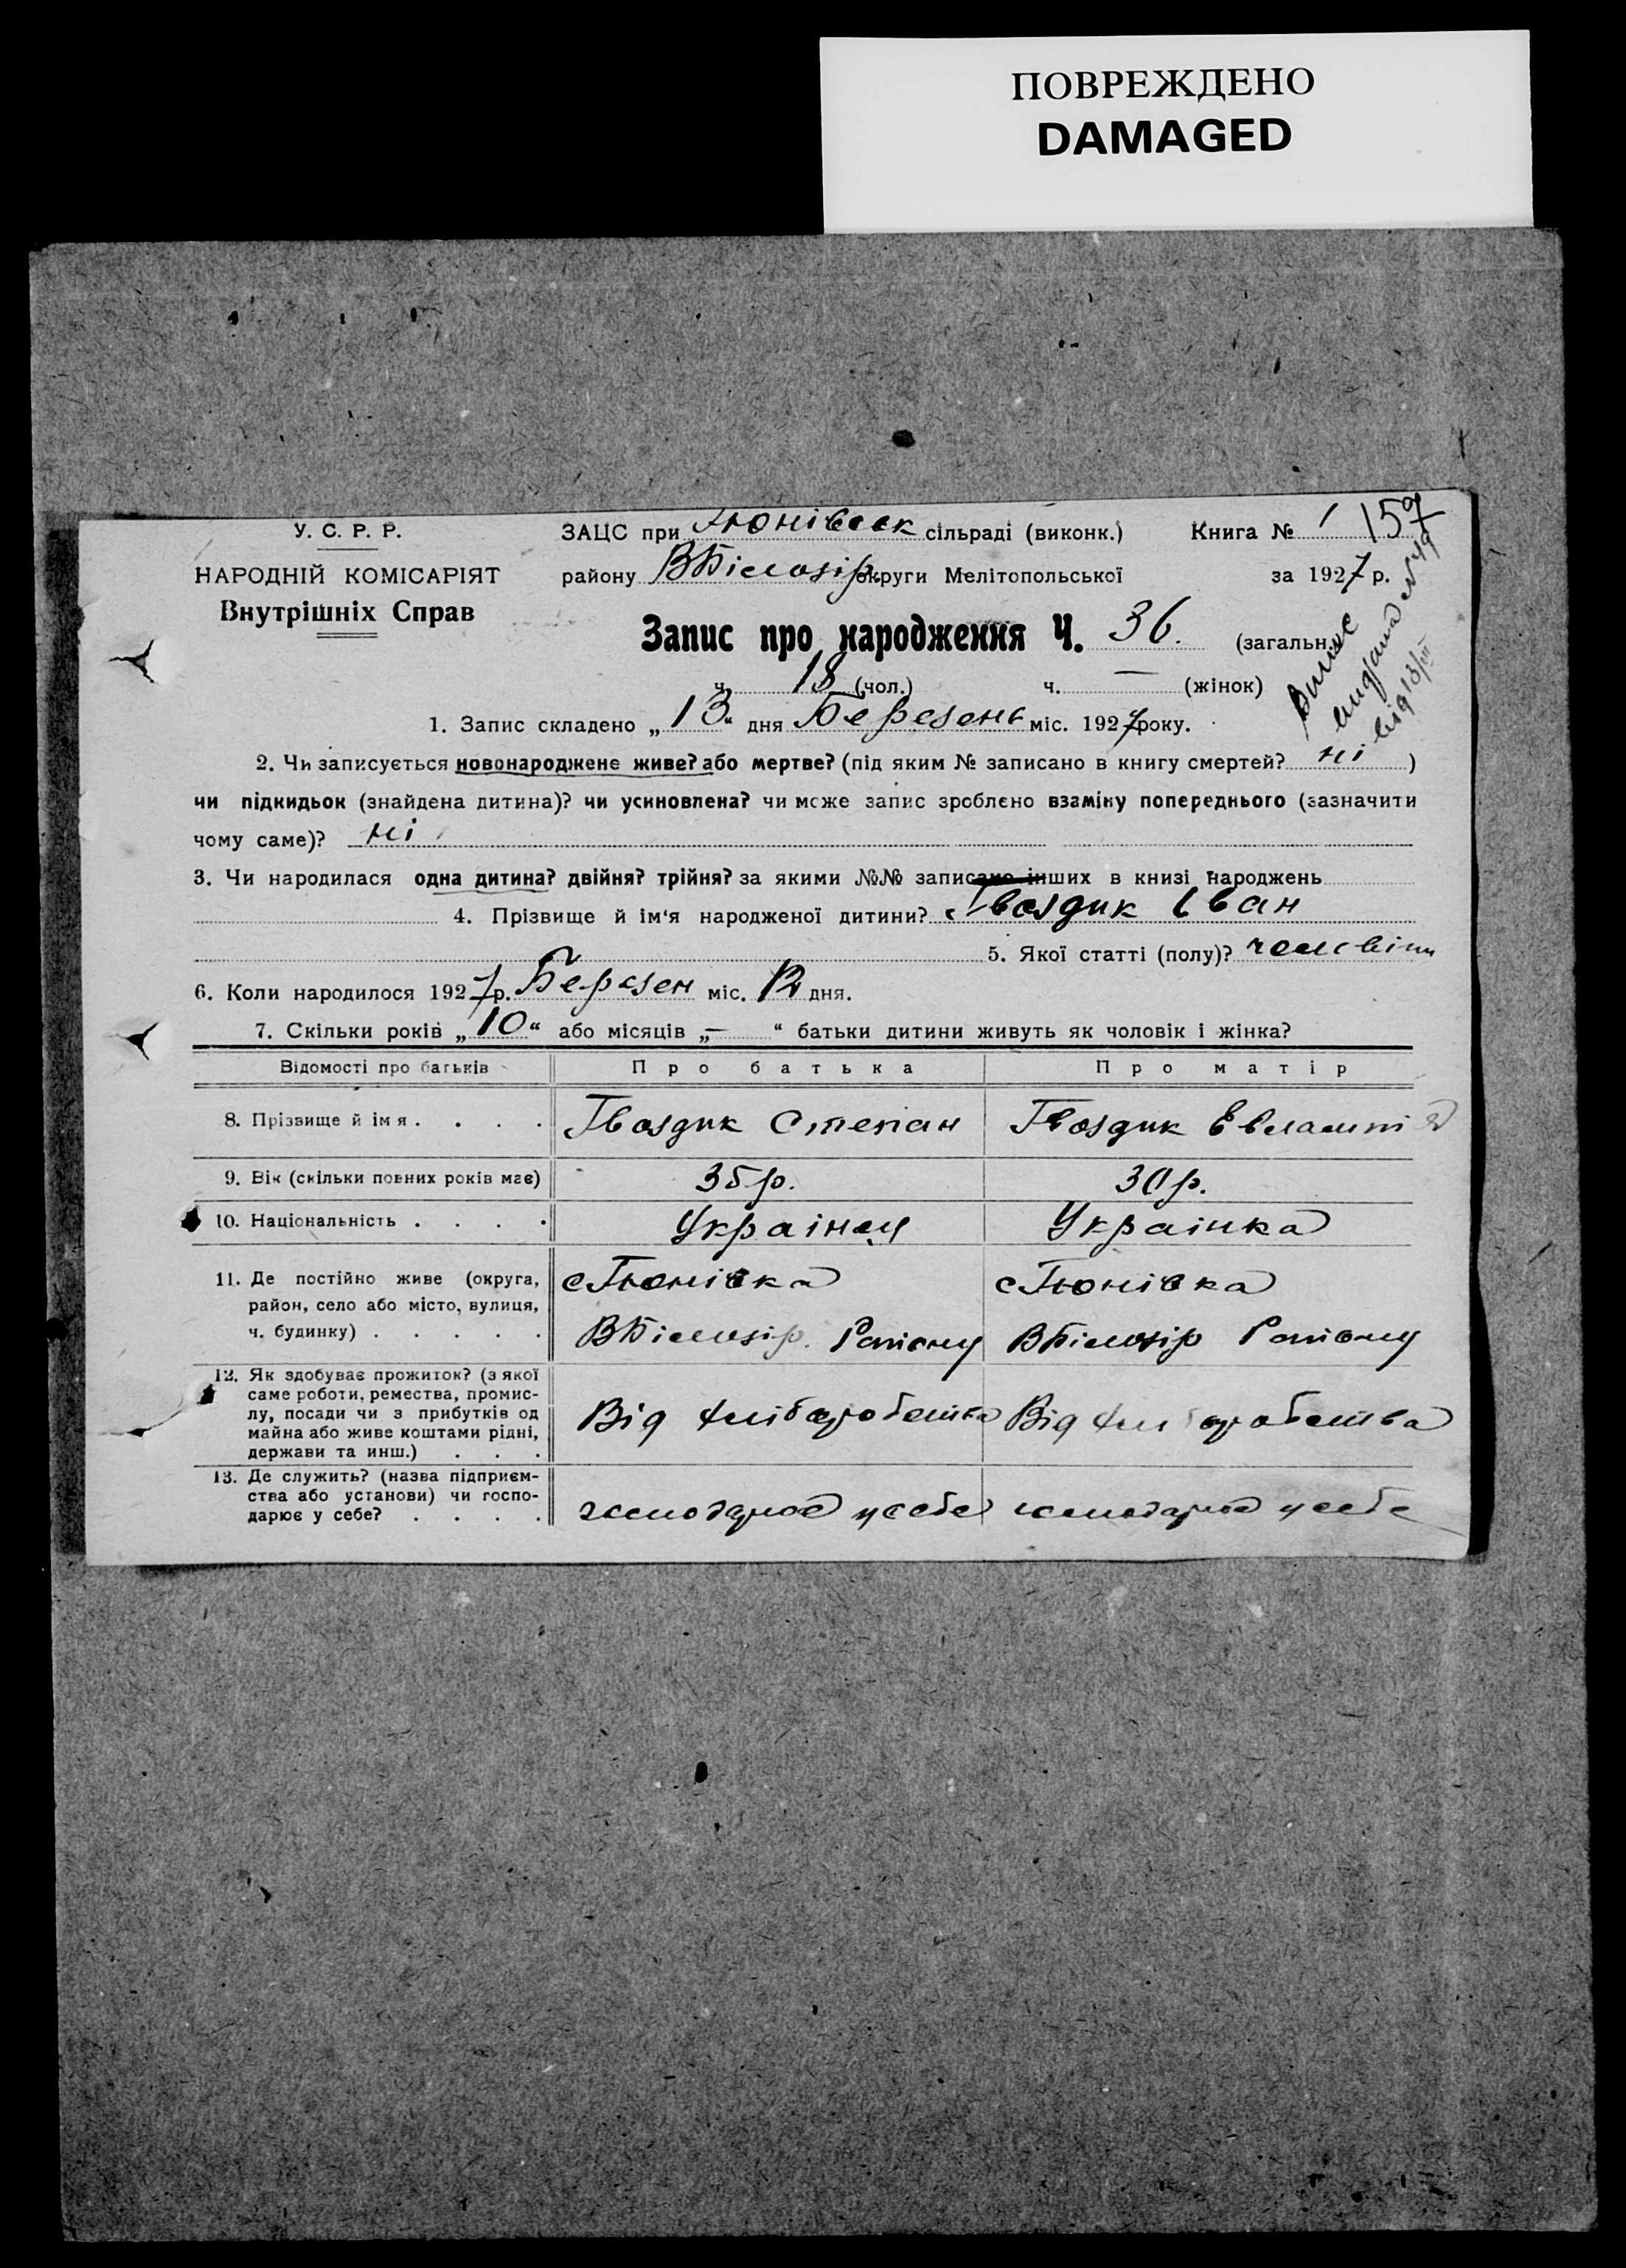 ПОВРЕЖДЕНО
DAMAGED
У. С. Р. Р.
НАРОДНІЙ КОМІСАРІЯТ
Внутрішніх Справ
ЗАЦС при Тюнівськ сільраді (виконк.) Книга № 1 157
району ВБілозір. округи Мелітопольської за 1927 р.
Запис про народження Ч. 36. (загальн.)
ч. 18 (чол.) ч. — (жінок)
Випис
видана № 49
від 13/III
1. Запис складено „13“ дня Березень міс. 1927 року.
2. Чи записується новонароджене живе? або мертве? (під яким № записано в книгу смертей? ні )
чи підкидьок (знайдена дитина)? чи усиновлена? чи може запис зроблено взаміну попереднього (зазначити
чому саме)? ні
3. Чи народилася одна дитина? двійня? трійня? за якими №№ записано інших в книзі народжень
4. Прізвище й ім'я народженої дитини? Гвоздик Іван
5. Якої статті (полу)? чоловічи
6. Коли народилося 1927 р. Березен міс. 12 дня.
7. Скільки років „10“ або місяців „—“ батьки дитини живуть як чоловік і жінка?
Відомості про батьків Про батька Про матір
8. Прізвище й ім я . . . . Гвоздик Степан Гвоздик Евлампія
9. Вік (скільки повних років має) 35 р. 30 р.
10. Національність . . . . Украінец Украінка
11. Де постійно живе (округа, район, село або місто, вулиця, ч. будинку) . . . . .
с Тюнівка
ВБілозір. Раіону
с Тюнівка
ВБілозір Раіону
12. Як здобуває прожиток? (з якої саме роботи, ремества, промислу, посади чи з прибутків од майна або живе коштами рідні, держави та инш.) . . .
Від хліборобства Від хліборобства
13. Де служить? (назва підприємства або установи) чи господарює у себе? . . . .
господарює у себе господарює у себе